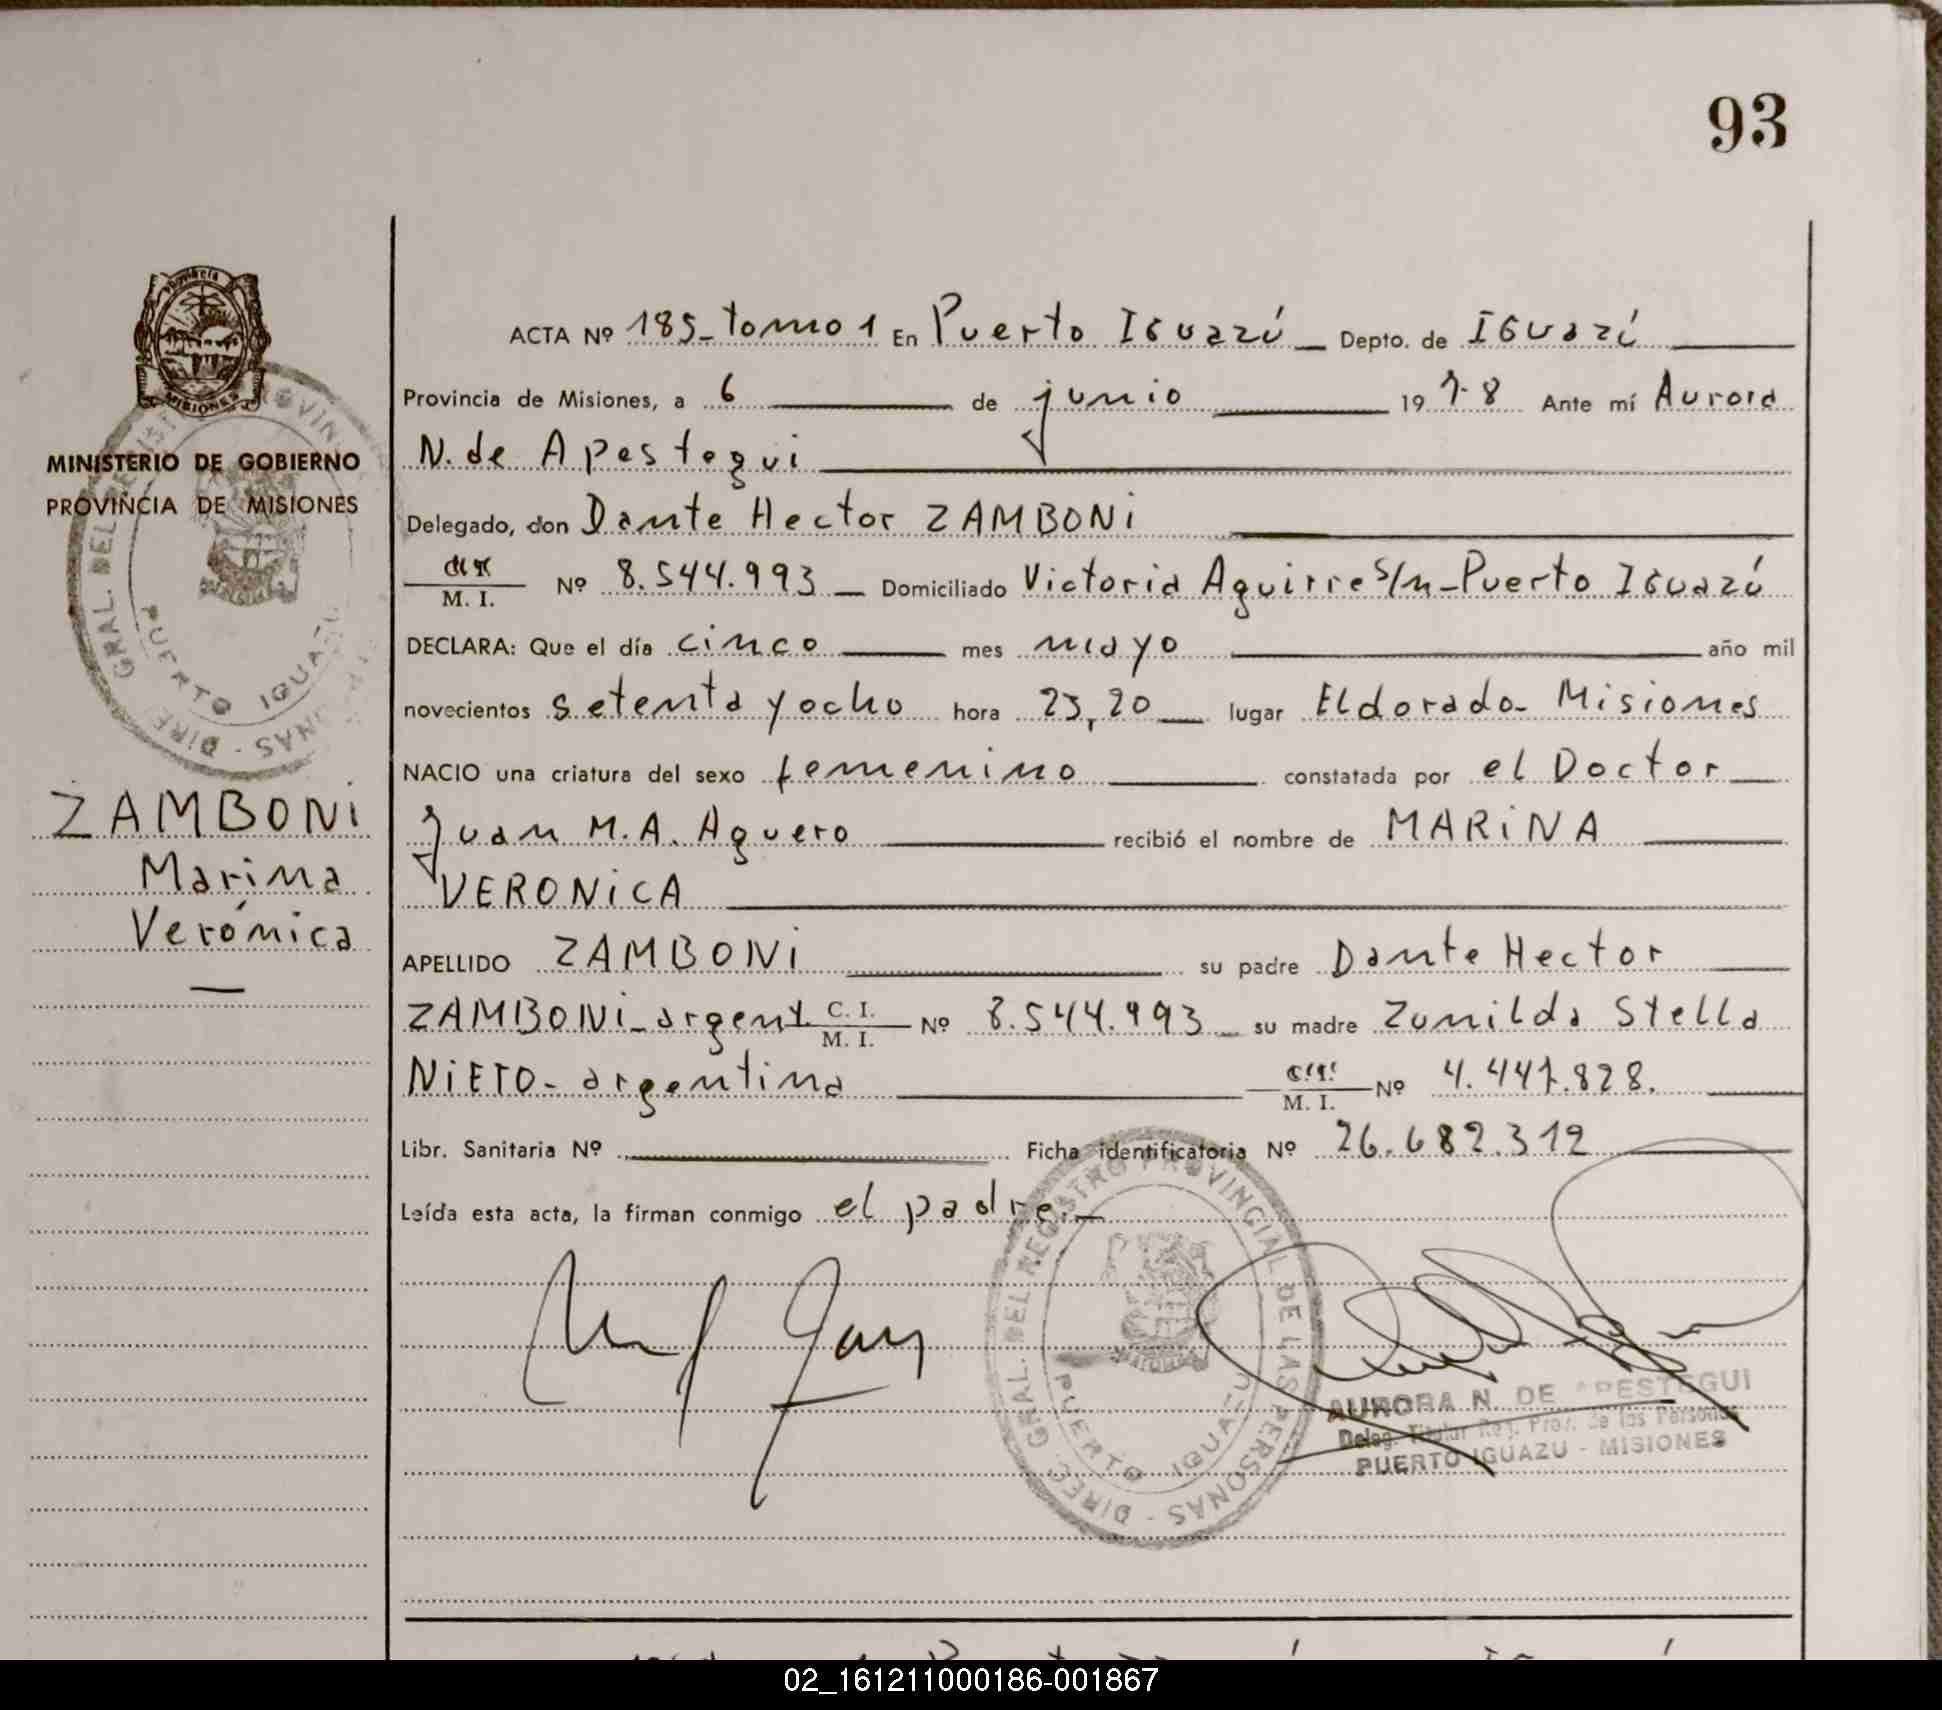 93
Provincia
MISIONES
MINISTERIO DE GOBIERNO
PROVINCIA DE MISIONES
DIREC. GRAL. DEL REGISTRO PROVINCIAL DE LAS PERSONAS
PUERTO IGUAZU
ZAMBONI
Marina
Verónica
ACTA Nº 185_ tomo 1 En Puerto Iguazú _ Depto. de Iguazú
Provincia de Misiones, a 6 de junio 1978 Ante mí Aurora
N. de Apestegui
Delegado, don Dante Hector ZAMBONI
M. I. Nº 8.544.993 _ Domiciliado Victoria Aguirre s/n - Puerto Iguazú
DECLARA: Que el día cinco mes mayo año mil
novecientos setenta y ocho hora 23,20 lugar Eldorado - Misiones
NACIO una criatura del sexo femenino constatada por el Doctor
Juan M.A. Aguero recibió el nombre de MARINA
VERONICA
APELLIDO ZAMBONI su padre Dante Hector
ZAMBONI - argent. C. I. M. I. Nº 8.544.993 _ su madre Zunilda Stella
NIETO - argentina C.I. M. I. Nº 4.447.828.
Libr. Sanitaria Nº Ficha identificatoria Nº 26.682.312
Leída esta acta, la firman conmigo el padre. -
DIREC. GRAL. DEL REGISTRO PROVINCIAL DE LAS PERSONAS
PUERTO IGUAZU
AURORA N. DE APESTEGUI
Deleg. Titular Reg. Prov. de las Personas
PUERTO IGUAZU - MISIONES
02_161211000186-001867